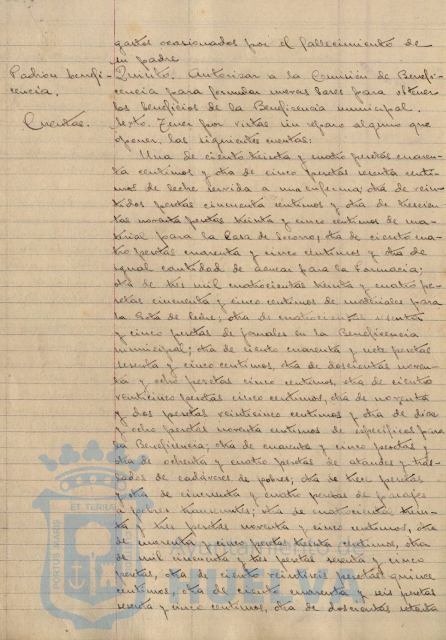 gastos ocasionados por el fallecimiento de
su padre
Padrón benefi-
cencia.
Quinto. Autorizar a la Comisión de Benefi-
cencia para formular nuevas bases para obtener
los beneficios de la Beneficencia municipal.
Cuentas.
Sexto. Tener por vistas sin reparo alguno que
oponer, las siguientes cuentas:
Una de ciento treinta y cuatro pesetas cuaren-
ta centimos y otra de cinco pesetas sesenta centi-
mos de leche servida a una enferma; otra de vein-
tidos pesetas cincuenta centimos y otra de trescien-
tas noventa pesetas treinta y cinco centimos de ma-
terial para la Casa de Socorro; otra de ciento cua-
tro pesetas cuarenta y cinco centimos y otra de
igual cantidad de azucar para la Farmacia;
otra de tres mil cuatrocientas treinta y cuatro pe-
setas cincuenta y cinco centimos de materiales para
la Gota de leche; otra de cuatrocientas
y cinco pesetas de jornales en la Beneficencia
municipal; otra de ciento cuarenta y siete pesetas
sesenta y cinco centimos, otra de doscientas noven-
ta y ocho pesetas cinco centimos, otra de ciento
veinticinco pesetas cinco centimos, otra de noventa
y dos pesetas veinticinco centimos y otra de diez
y ocho pesetas noventa centimos de especificos para
la Beneficencia; otra de cuarenta y cinco pesetas y
otra de ochenta y cuatro pesetas de ataudes y tras-
lados de cadáveres de pobres; otra de trece pesetas
y otra de cincuenta y cuatro pesetas de pasajes
a pobres transeuntes; otra de cuatrocientas trein-
ta y tres pesetas noventa y cinco centimos, otra
de cuarenta y cinco pesetas treinta centimos, otra
de mil cincuenta y tres pesetas sesenta y cinco
pesetas, otra de ciento veintiseis pesetas quince
centimos, otra de ciento cuarenta y seis pesetas
sesenta y cinco centimos, otra de doscientas setenta
PORTUS MARIS
ET TERRAE
Ayuntamiento de
HUELVA